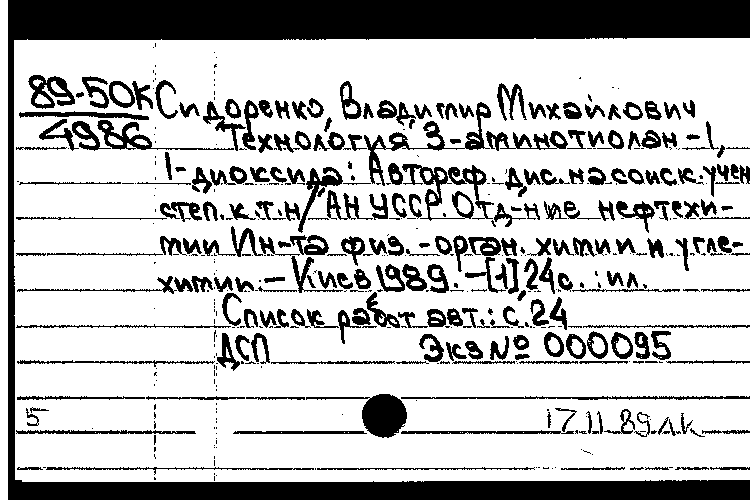 89-50К Сидоренко, Владимир Михайлович
4986 Технология 3-аминотиолан-1,
1-диоксида: Автореф. дис. на соиск. учен
степ. к.т.н/АН УССР. Отд-ние нефтехи-
мии Ин-та физ.-орган. химии и угле-
химии. — Киев 1989. — [1], 24 с. : ил.
Список работ авт.: с. 24
ДСП Экз № 000095
5 17 11 89 лк